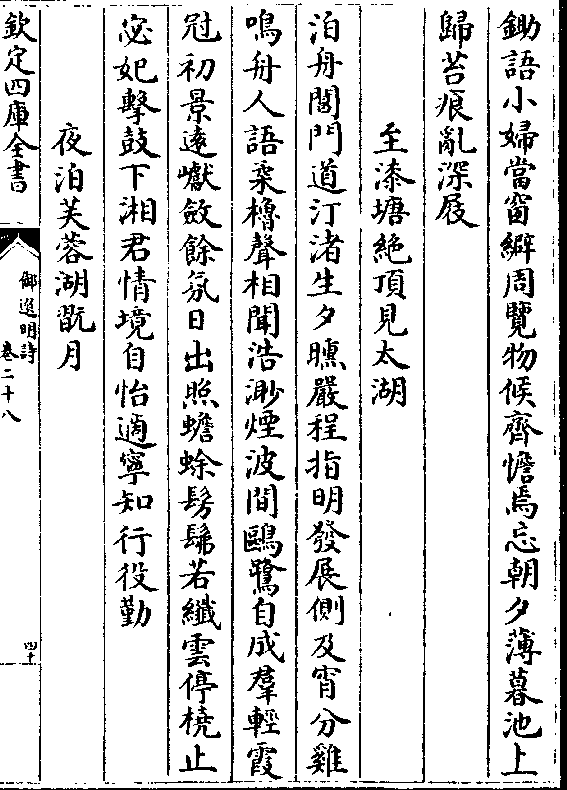 鋤語小婦當窗緶周覽物候齊憺焉忘朝夕薄暮池上
歸苔痕亂深屐
至漆塘絶頂見太湖
泊舟閶門道汀渚生夕曛嚴程指明發展側及宵分雞
鳴舟人語桒櫓聲相聞浩渺煙波間鷗鷺自成羣輕霞
冠初景逺巘斂餘氛日出照蟾蜍髣髴若纖雲停橈止
宓妃擊鼓下湘君情境自怡適寧知行役勤
夜泊芙蓉湖翫月
欽定四庫全書
御選明詩
卷二十八
四十